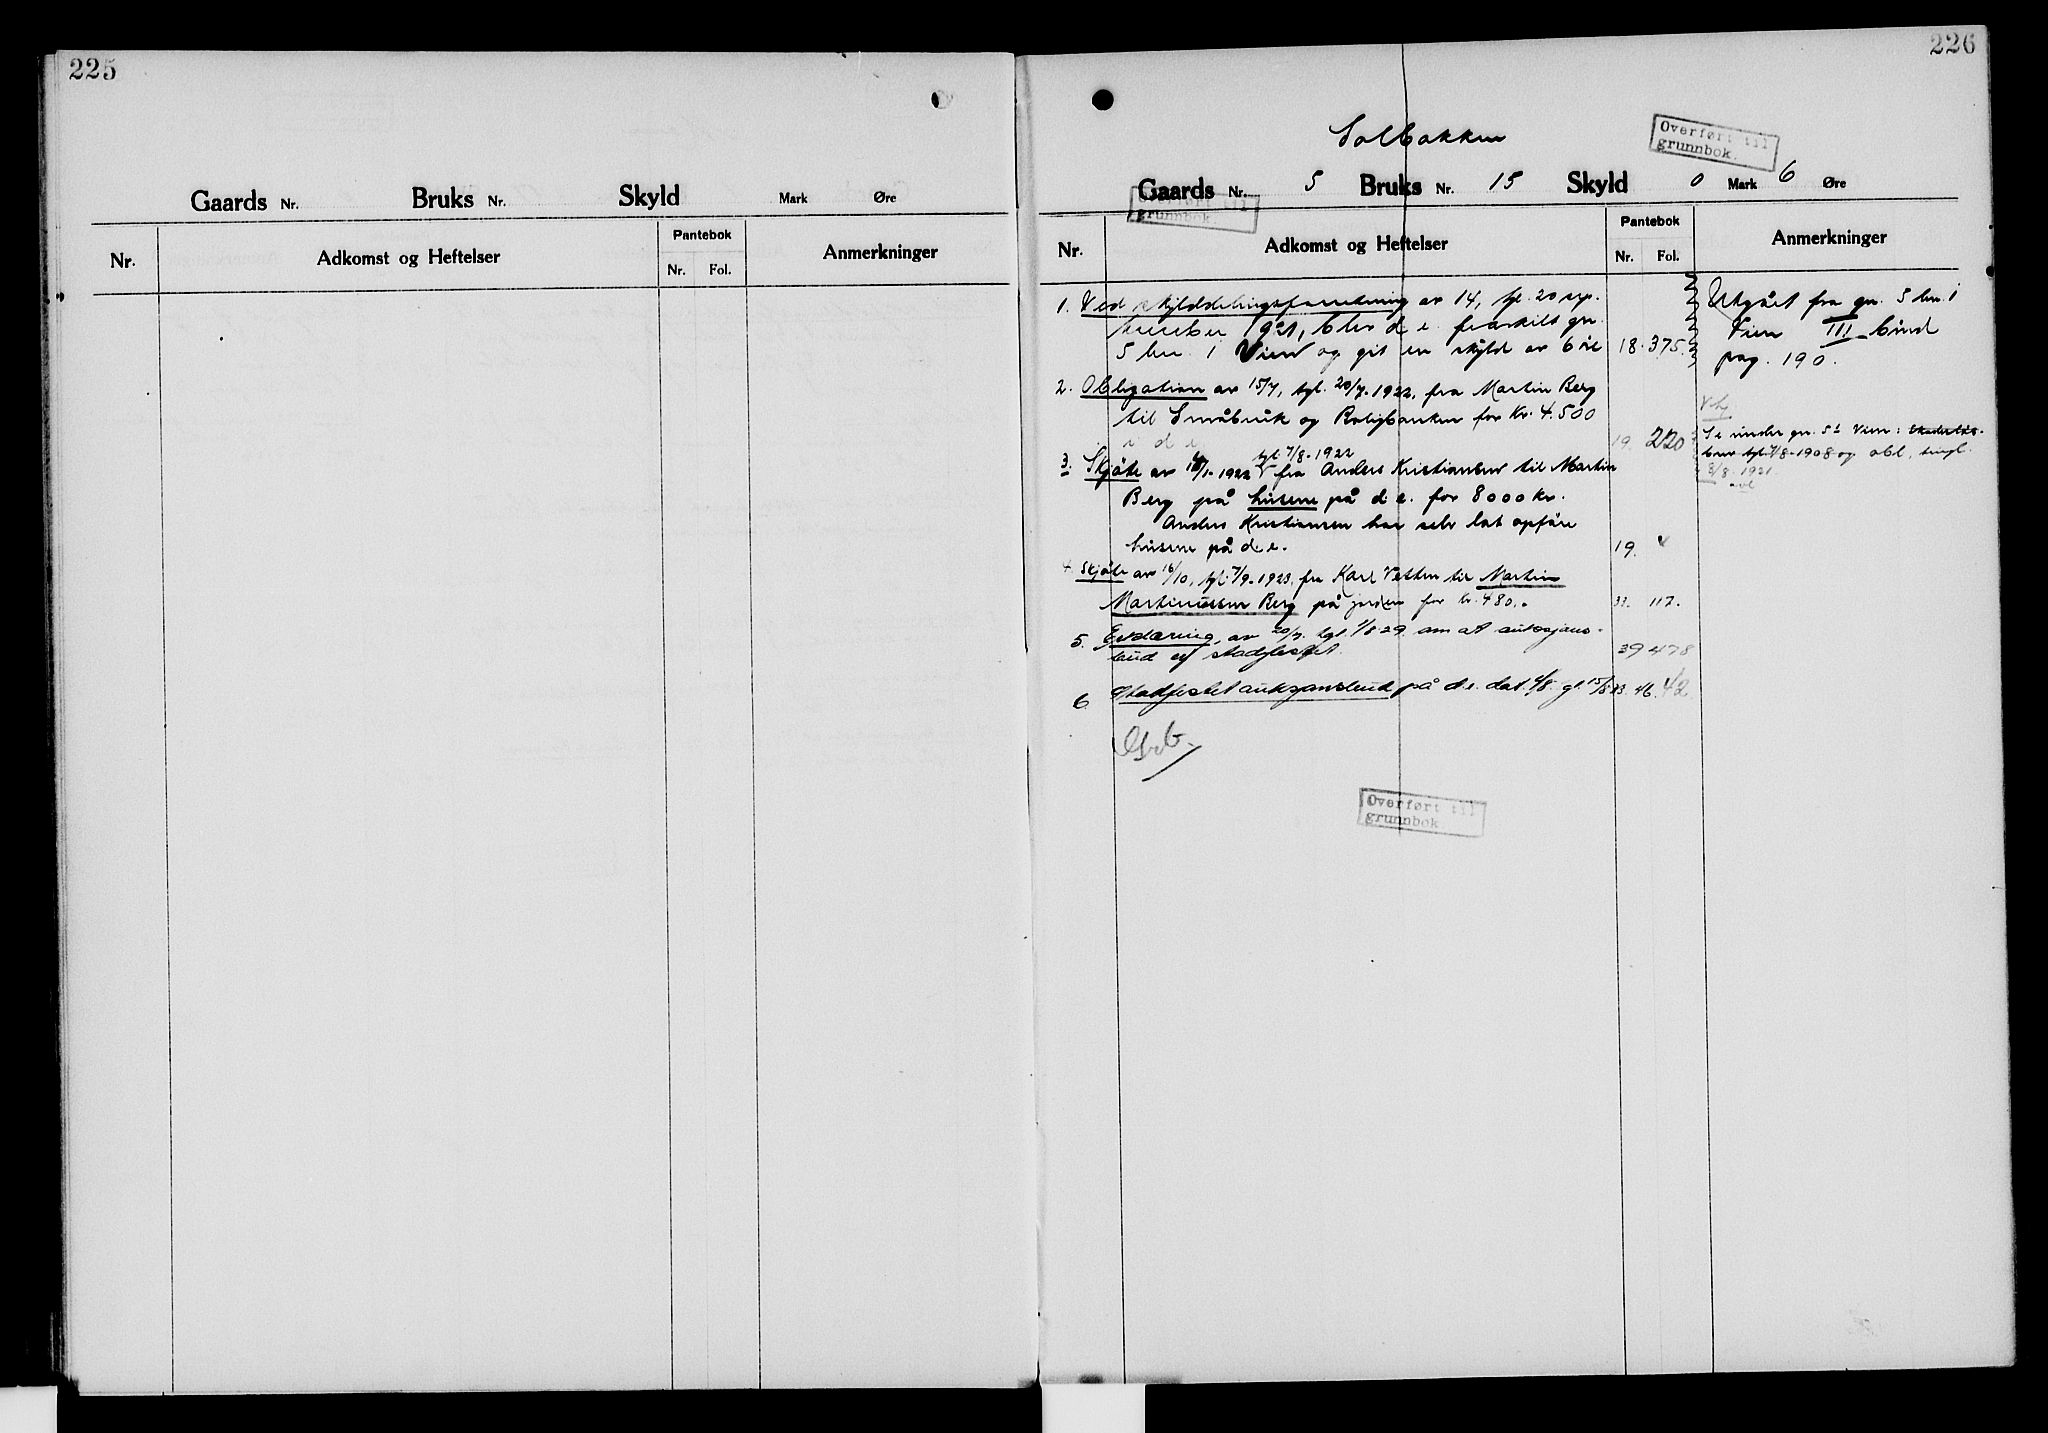 225
Gaards Nr. Bruks Nr. Skyld Mark Øre
Nr. Adkomst og Heftelser Pantebok Nr. Fol. Anmerkninger
226
Solbakken
Overført til
grunnbok.
Gaards Nr. 5 Bruks Nr. 15 Skyld 0 Mark 6 Øre
grunnbok.
Nr. Adkomst og Heftelser Pantebok Nr. Fol. Anmerkninger
1. Ved skylddelingsforretning av 14, tgl. 20 sep-
tember 1921, blev d. e. fraskilt gn.
5 bn. 1 Vien og git en skyld av 6 øre 18. 375.
Utgået fra gn. 5 bn. 1
Vien III bind
pag. 190.
2. Obligation av 15/7, tgl. 20/7-1922, fra Martin Berg
til Småbruk og Boligbanken for Kr. 4.500
i d e 19. 220
Se under gn. 5/1 Vien:
brev tgl. 7/8-1908 og obl. tingl.
3/8. 1921.
3. Skjøte av 1/1-1922 tgl 7/8-1922 fra Anders Kristiansen til Martin
Berg på husene på d. e. for 8000 kr.
Anders Kristiansen har selv lat opføre
husene på d. e. 19.
4. Skjøte av 16/10, tgl. 7/9-1923, fra Karl Vetten til Martin
Martinussen Berg på jorden for kr. 480.- 33. 117.
5. Erklæring, av 20/7. tgl. 1/8 29 om at auksjons-
bud er stadfestet. 39 478
6. Stadfestet auksjonsbud på d. e. dat. 4/8. gl. 15/8 33. 46. 42.
Overført til
grunnbok.